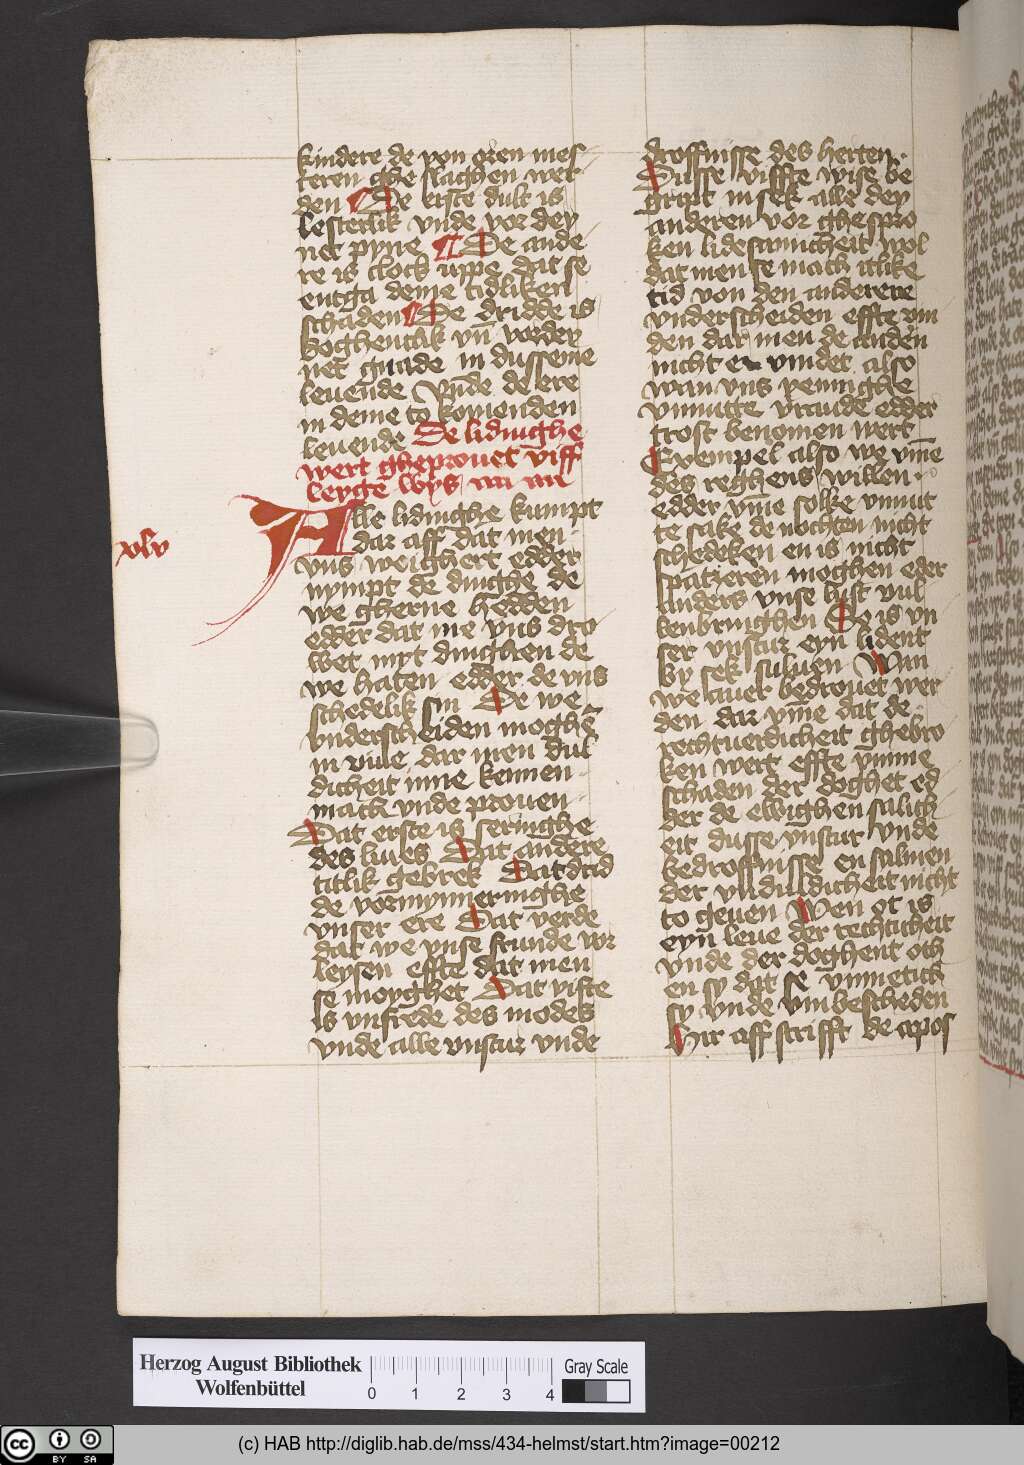 kindere de von oren mes
teren ghe slaghen wer
den De liste dult is
lesterlik vnde vor dey
net pyne De ande
re is clock vppe dat se
entga deme tidliken
schaden De dridde is
boghentlik vn̄ vorder
net gnade in dusseme
leuende Vnde de lere
in deme to komenden
leuende De lidinghe
wert gheprouet viff
leyge wys
Alle lidinghe kumpt
dar aff dat men
vns weighert edder
nympt de dinghe de
we gherne hedden
edder dat me vns dro
wet myt dinghen de
we haten edder de vns
schedelik sin De we
vndersch liden moghē
in viue dar men dul
dicheit inne kennen
mach vnde prouen
Dat erste is seringhe
des liues Dat andere
titlik gebrek Dat drid
de vormynneringhe
vnser ere Dat verde
dat we vnse frunde vor
leysen effte dat men
se moyghet Dat vifte
is vnfrede des modes
vnde alle vnstur vnde
xlv
droffnisse des herten
Dusse viffte wise be
gript in sek alle dey
anderen vor ghespro
ken lidesamicheit wol
dat men se mach itlike
tid von den anderere
vnderscheiden effte vm
den dar men de anden
nicht en vindet also
wan vns pennighe
vnnutte vraude edder
trost benomen wert
Exempel also we vm̄e
des reghens willen
edder vm̄e solke vnnut
te sake de nochten nicht
schedeken en is nicht
spatzeren moghen eder
anders vnse lust vul
kenbringhen De is vn
ser vnstur eyn lident
by sek suluen Wan
we auer bedrouet wer
den dar vm̄e dat de
rechtuerdicheit ghebro
ken wert effte vmme
schaden der doghet ed
der de ewighen salich
eit dusse vnstur vnde
bedroffnisse en saluen
der vnduldicheit nicht
to geuen Wen ot is
eyn leue der rechticheit
vnde der doghent och
en sy dat se vnmetich
sy vnde vnbescheden
Hir aff scrifft de apos
Herzog August Bibliothek
Wolfenbüttel
0 1 2 3 4
Gray Scale
cc BY SA
(c) HAB http://diglib.hab.de/mss/434-helmst/start.htm?image=00212